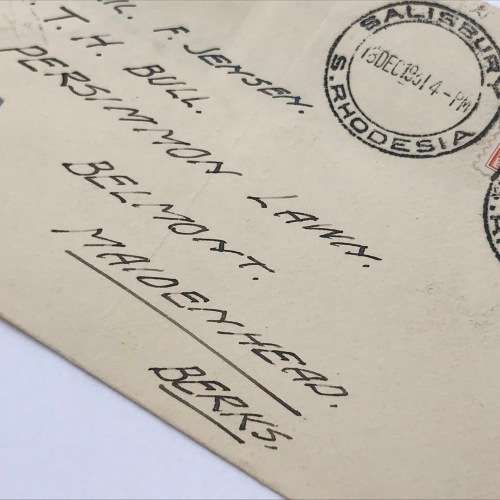 F. JENSEN.
T. H. BULL.
PERSIMMON LAWN.
BELMONT.
MAIDENHEAD.
BERKS.
SALISBURY
13DEC1961 4-PM
S. RHODESIA